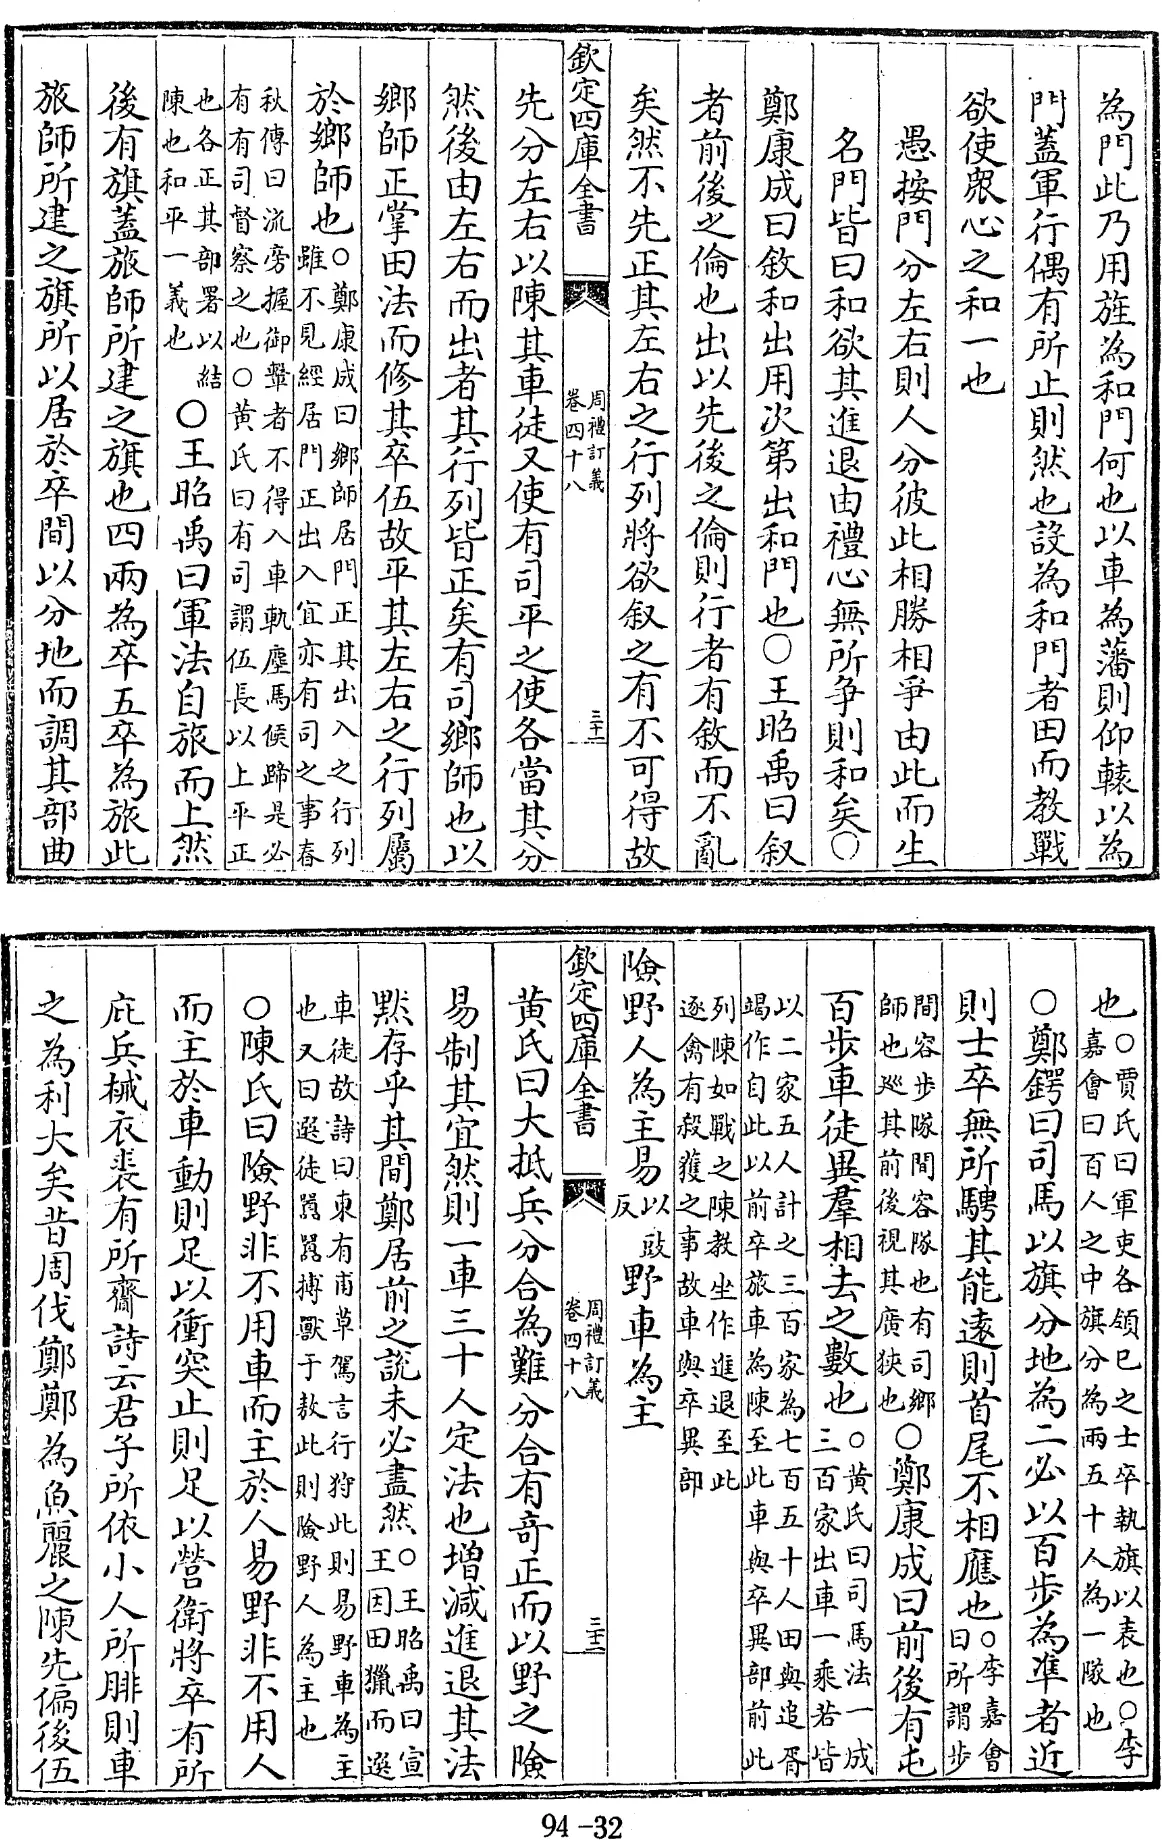 為門此乃用旌為和門何也以車為藩則仰轅以為
門蓋軍行偶有所止則然也設為和門者田而教戰
欲使衆心之和一也
愚按門分左右則人分彼此相勝相爭由此而生
名門皆曰和欲其進退由禮心無所争則和矣○
鄭康成曰敘和出用次第出和門也○王昭禹曰叙
者前後之倫也出以先後之倫則行者有敘而不亂
矣然不先正其左右之行列將欲叙之有不可得故
欽定四庫全書
周禮訂義
卷四十八
三十一
先分左右以陳其車徒又使有司平之使各當其分
然後由左右而出者其行列皆正矣有司鄉師也以
鄉師正掌田法而修其卒伍故平其左右之行列屬
於鄉師也○鄭康成曰鄉師居門正其出入之行列
雖不見經居門正出入宜亦有司之事春
秋傳曰流旁握御轚者不得入車軌塵馬候蹄是必
有有司督察之也○黄氏曰有司謂伍長以上平正
也各正其部署以結
陳也和平一義也
○王昭禹曰軍法自旅而上然
後有旗蓋旅師所建之旗也四兩為卒五卒為旅此
旅師所建之旗所以居於卒間以分地而調其部曲
也○賈氏曰軍吏各領已之士卒執旗以表也○李
嘉會曰百人之中旗分為兩五十人為一隊也
○鄭鍔曰司馬以旗分地為二必以百步為凖者近
則士卒無所騁其能逺則首尾不相應也○李嘉會
曰所謂步
間容步隊間容隊也有司鄉
師也廵其前後視其廣狹也
○鄭康成曰前後有屯
百步車徒異羣相去之數也○黄氏曰司馬法一成
三百家出車一乘若皆
以二家五人計之三百家為七百五十人田與追胥
竭作自此以前卒旅車為陳至此車與卒異部前此
列陳如戰之陳教坐作進退至此
逐禽有殺獲之事故車與卒異部
險野人為主易以豉反野車為主
欽定四庫全書
周禮訂義
卷四十八
三十二
黄氏曰大抵兵分合為難分合有竒正而以野之險
易制其宜然則一車三十人定法也增減進退其法
黙存乎其間鄭居前之説未必盡然○王昭禹曰宣
王因田獵而選
車徒故詩曰東有甫草駕言行狩此則易野車為主
也又曰選徒嚻嚻搏獸于敖此則險野人為主也
○陳氏曰險野非不用車而主於人易野非不用人
而主於車動則足以衝突止則足以營衛將卒有所
庇兵械衣裘有所齎詩云君子所依小人所腓則車
之為利大矣昔周伐鄭鄭為魚麗之陳先偏後伍
94-32